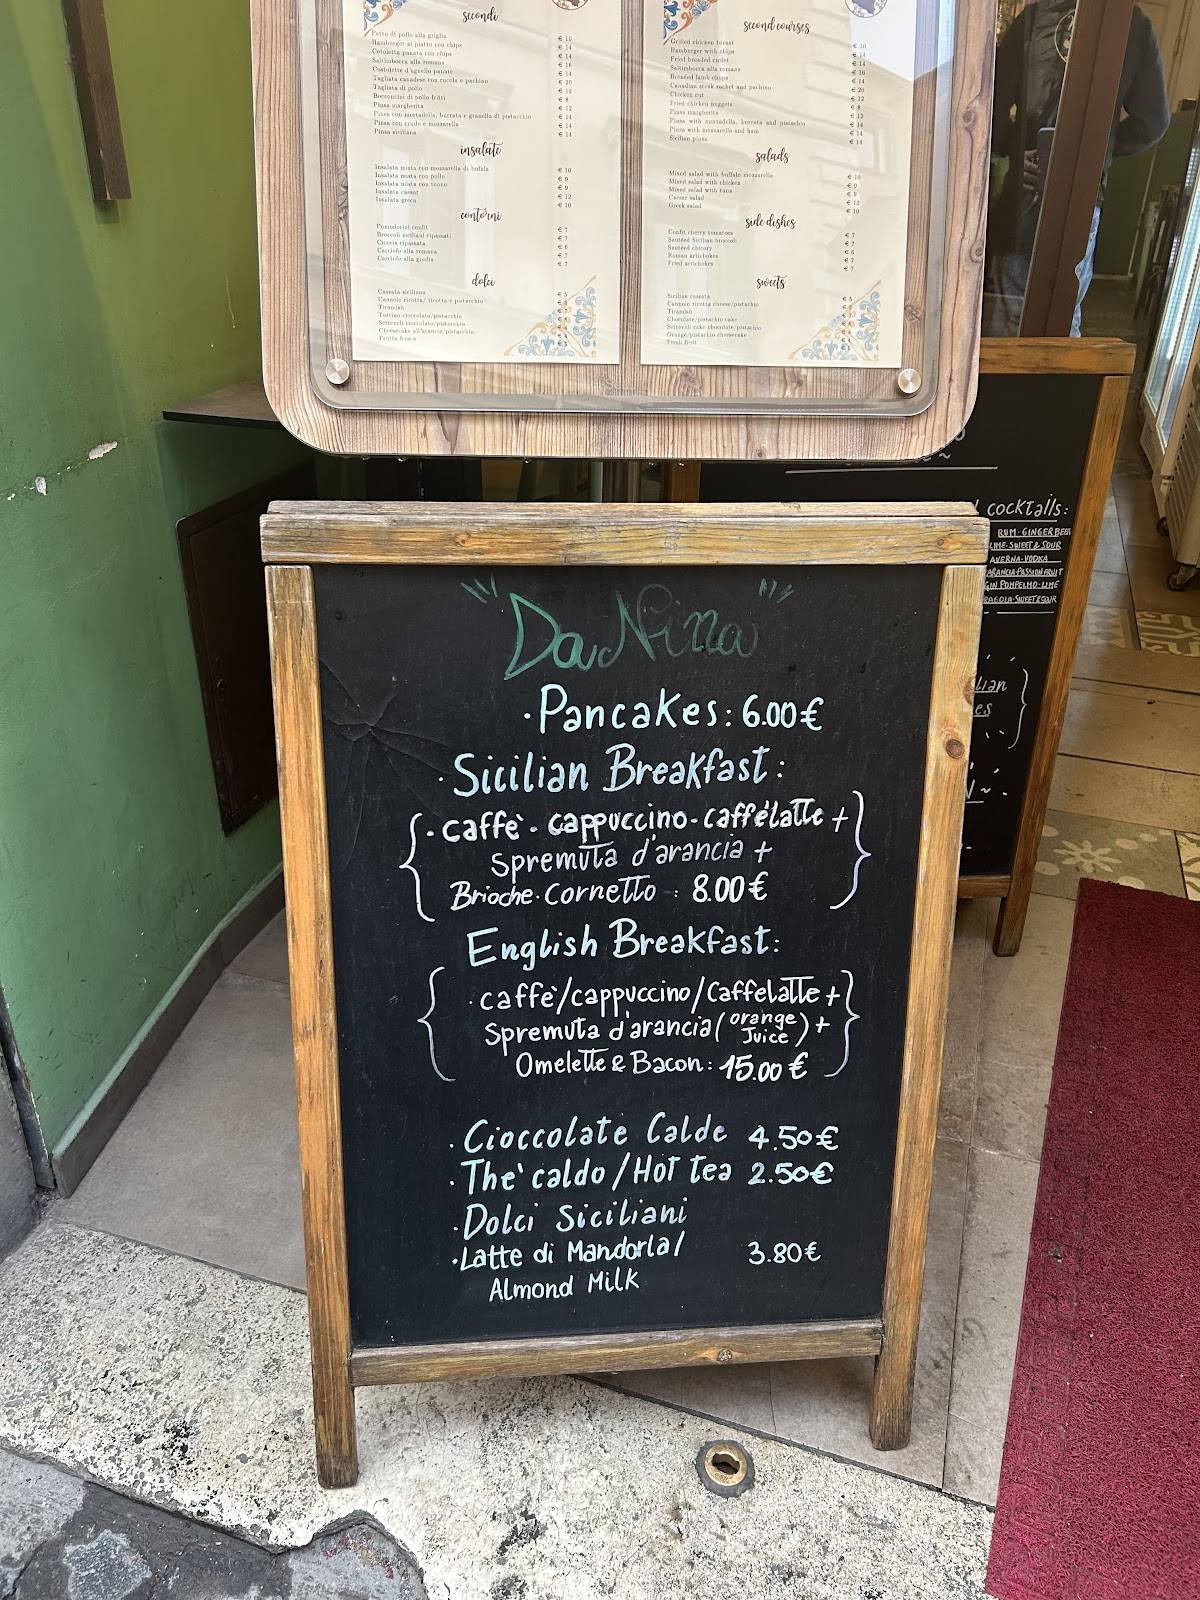 secondi
Petto di pollo alla griglia € 10
Hamburger al piatto con chips € 14
Cotoletta panata con chips € 14
Saltimbocca alla romana € 16
Costolette d'agnello panate € 14
Tagliata canadese con rucola e pachino € 20
Tagliata di pollo € 12
Bocconcini di pollo fritti € 8
Pinsa margherita € 12
Pinsa con mortadella, burrata e granella di pistacchio € 14
Pinsa con crudo e mozzarella € 14
Pinsa siciliana € 14
insalate
Insalata mista con mozzarella di bufala € 10
Insalata mista con pollo € 9
Insalata mista con tonno € 9
Insalata caesar € 12
Insalata greca € 10
contorni
Pomodorini confit € 7
Broccoli siciliani ripassati € 7
Cicoria ripassata € 6
Carciofo alla romana € 7
Carciofo alla giudia € 7
dolci
Cassata siciliana € 5
Cannolo ricotta/ ricotta e pistacchio
Tiramisù
Tortino cioccolato/pistacchio
Setteveli cioccolato/pistacchio
Cheesecake all'arancia/pistacchio
Frutta fresca
second courses
Grilled chicken breast € 10
Hamburger with chips € 14
Fried breaded cutlet € 14
Saltimbocca alla romana € 16
Breaded lamb chops € 14
Canadian steak rocket and pachino € 20
Chicken cut € 12
Fried chicken nuggets € 8
Pinsa margherita € 12
Pinsa with mortadella, burrata and pistachio € 14
Pinsa with mozzarella and ham € 14
Sicilian pinsa € 14
salads
Mixed salad with buffalo mozzarella € 10
Mixed salad with chicken € 9
Mixed salad with tuna € 9
Caesar salad € 12
Greek salad € 10
side dishes
Confit cherry tomatoes € 7
Sautéed Sicilian broccoli € 7
Sautéed chicory € 6
Roman artichokes € 7
Fried artichokes € 7
sweets
Sicilian cassata € 5
Cannolo ricotta cheese/pistachio
Tiramisù
Chocolate/pistachio cake
Setteveli cake chocolate/pistachio
Orange/pistachio cheesecake
Fresh fruit
cocktails:
RUM-GINGER BEER
LIME-SWEET & SOUR
AVERNA-VODKA
ARANCIA-PASSION FRUIT
GIN POMPELMO-LIME
SWEET & SOUR
"Da Nina"
· Pancakes: 6.00€
· Sicilian Breakfast:
{ · caffè - cappuccino - caffélatte + }
spremuta d'arancia +
Brioche - Cornetto : 8.00€
English Breakfast:
{ · caffè/cappuccino/Caffelatte + }
Spremuta d'arancia (orange Juice) +
Omelette & Bacon: 15.00€
· Cioccolate Calde 4.50€
· The' caldo / Hot tea 2.50€
· Dolci Siciliani
· Latte di Mandorla/ 3.80€
Almond Milk